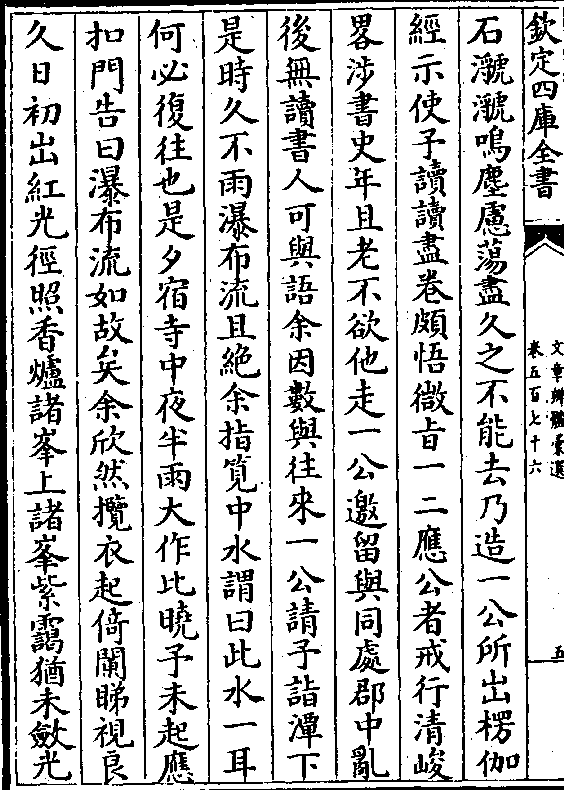 欽定四庫全書
文章辨體彙選
卷五百七十六
五
石㶁㶁鳴塵慮蕩盡久之不能去乃造一公所出楞伽
經示使予讀讀盡卷頗悟微旨一二應公者戒行清峻
畧渉書史年且老不欲他走一公邀留與同處郡中亂
後無讀書人可與語余因數與往來一公請予詣潭下
是時久不雨瀑布流且絶余指筧中水謂曰此水一耳
何必復往也是夕宿寺中夜半雨大作比曉予未起應
扣門告曰瀑布流如故矣余欣然攬衣起倚闌睇視良
久日初出紅光徑照香爐諸峯上諸峯紫靄猶未斂光